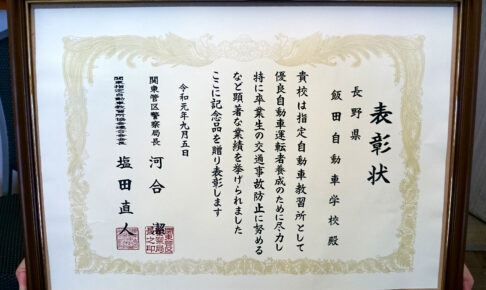 表彰状
長野県
飯田自動車学校殿
貴校は指定自動車教習所として
優良自動車運転者養成のために尽力し
特に卒業生の交通事故防止に努める
など顕著な業績を挙げられました
ここに記念品を贈り表彰します
令和元年九月五日
関東管区警察局長 河合潔
関東指定自動車教習所協会連合会会長 塩田直人